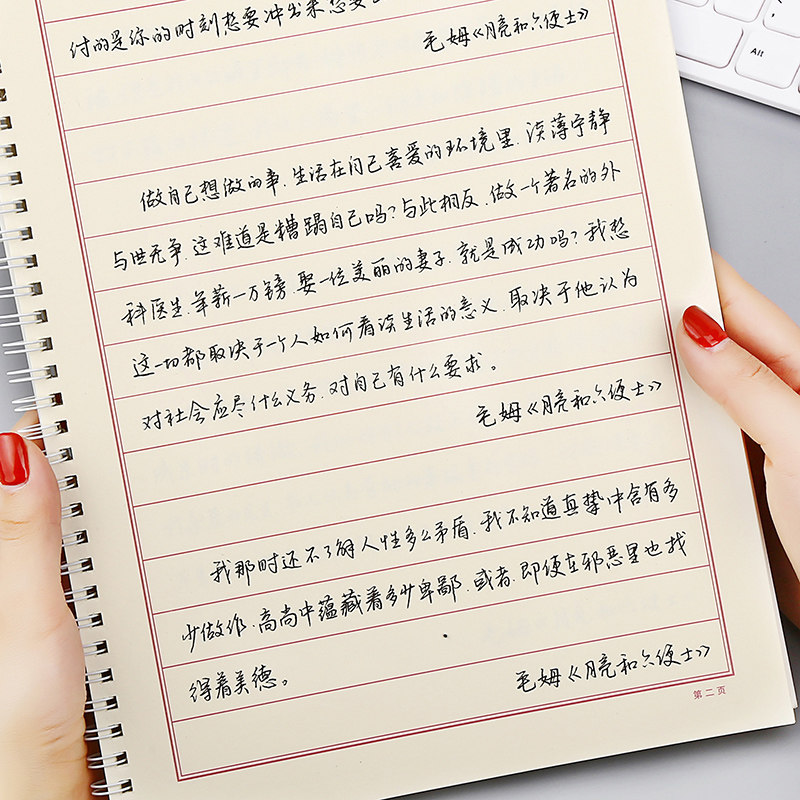 付的是你的时刻想要冲出来想要
毛姆《月亮和六便士》
做自己想做的事、生活在自己喜爱的环境里、淡薄宁静
与世无争、这难道是糟蹋自己吗?与此相反、做一个著名的外
科医生、年薪一万镑、娶一位美丽的妻子、就是成功吗?我想
这一切都取决于一个人如何看谈生活的意义、取决于他认为
对社会应尽什么义务、对自己有什么要求。
毛姆《月亮和六便士》
我那时还不了解人性多么矛盾、我不知道真挚中含有多
少做作、高尚中蕴藏着多少卑鄙、或者、即使在邪恶里也找
得着美德。
毛姆《月亮和六便士》
第二页
Alt